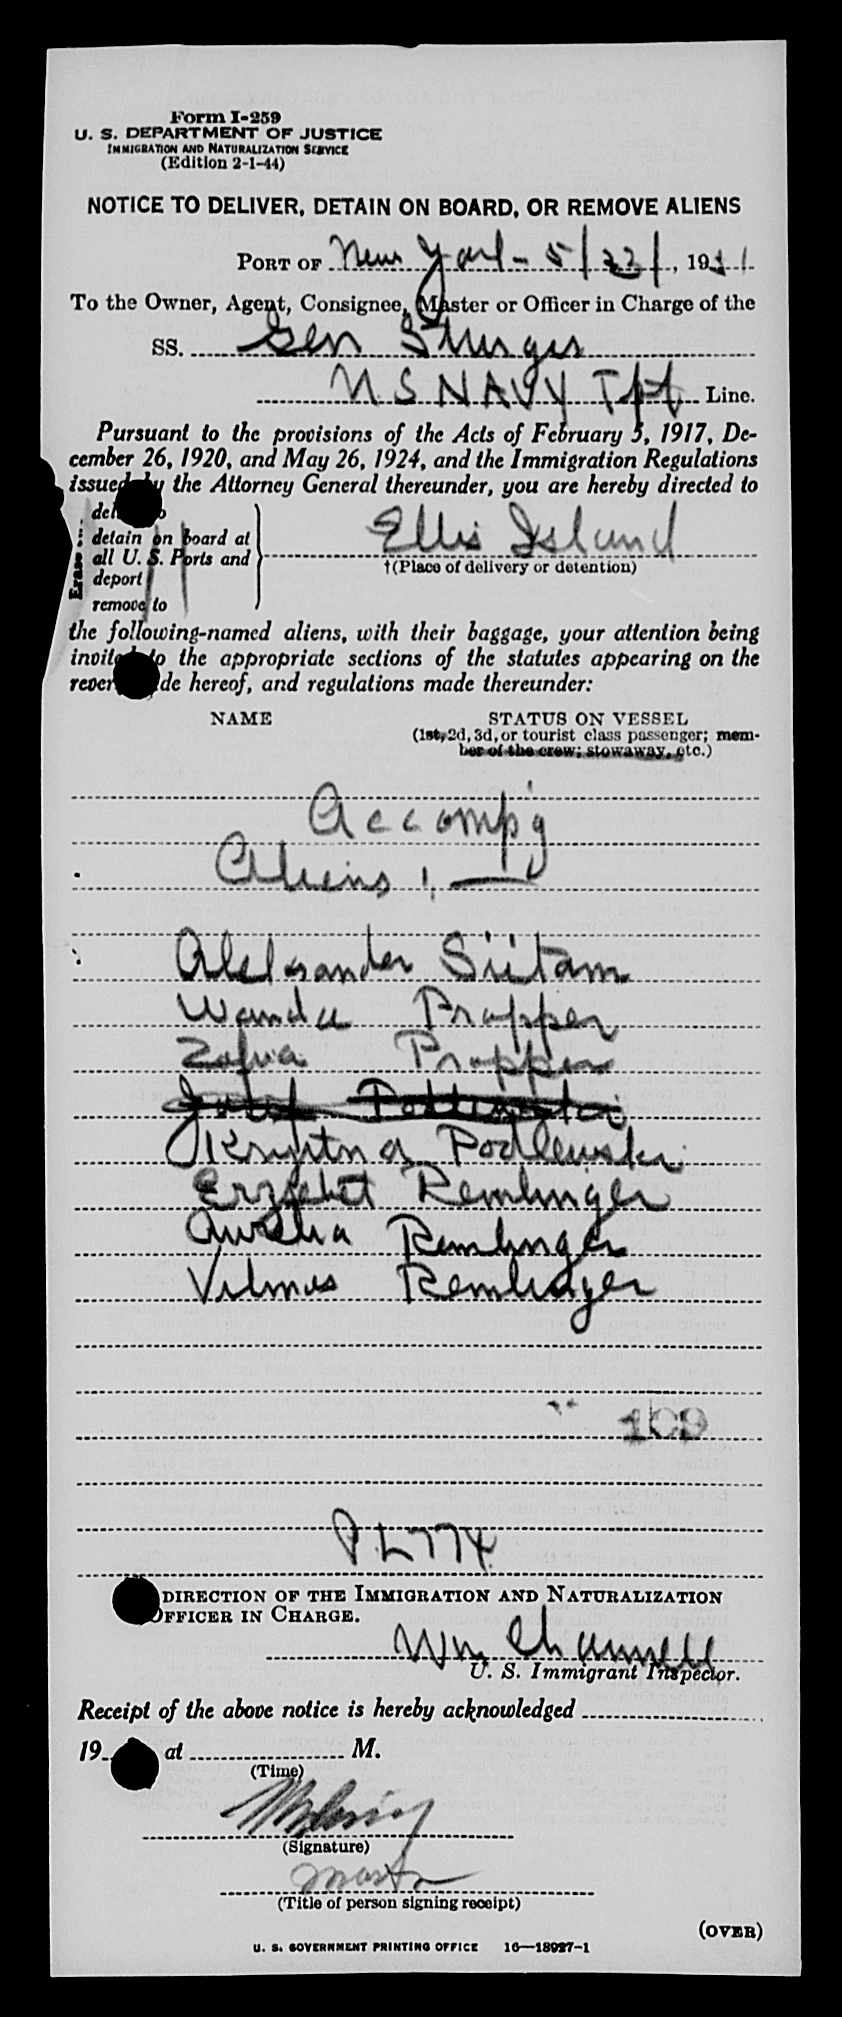 Form I-259
U. S. DEPARTMENT OF JUSTICE
IMMIGRATION AND NATURALIZATION SERVICE
(Edition 2-1-44)
NOTICE TO DELIVER, DETAIN ON BOARD, OR REMOVE ALIENS
PORT OF New York - 5/23/, 1951
To the Owner, Agent, Consignee, Master or Officer in Charge of the
SS. Gen Sturgis
US NAVY Tpt Line.
Pursuant to the provisions of the Acts of February 5, 1917, De-
cember 26, 1920, and May 26, 1924, and the Immigration Regulations
issued by the Attorney General thereunder, you are hereby directed to
detain on board at
all U. S. Ports and
deport
remove to
Ellis Island
†(Place of delivery or detention)
the following-named aliens, with their baggage, your attention being
invited to the appropriate sections of the statutes appearing on the
hereof, and regulations made thereunder:
NAME STATUS ON VESSEL
(1st, 2d, 3d, or tourist class passenger; mem-
ber of the crew; stowaway, etc.)
Accomp'g
Aliens : —
Aleksander Siitam
Wanda Propper
Zofia Propper
Krystna Podlewska
Erzsebet Remlinger
Aurelia Remlinger
Vilmos Remlinger
109
PL774
DIRECTION OF THE IMMIGRATION AND NATURALIZATION
OFFICER IN CHARGE.
Wm
U. S. Immigrant Inspector.
Receipt of the above notice is hereby acknowledged
19 at M.
(Time)
(Signature)
Master
(Title of person signing receipt)
(OVER)
U. S. GOVERNMENT PRINTING OFFICE 16—18927-1